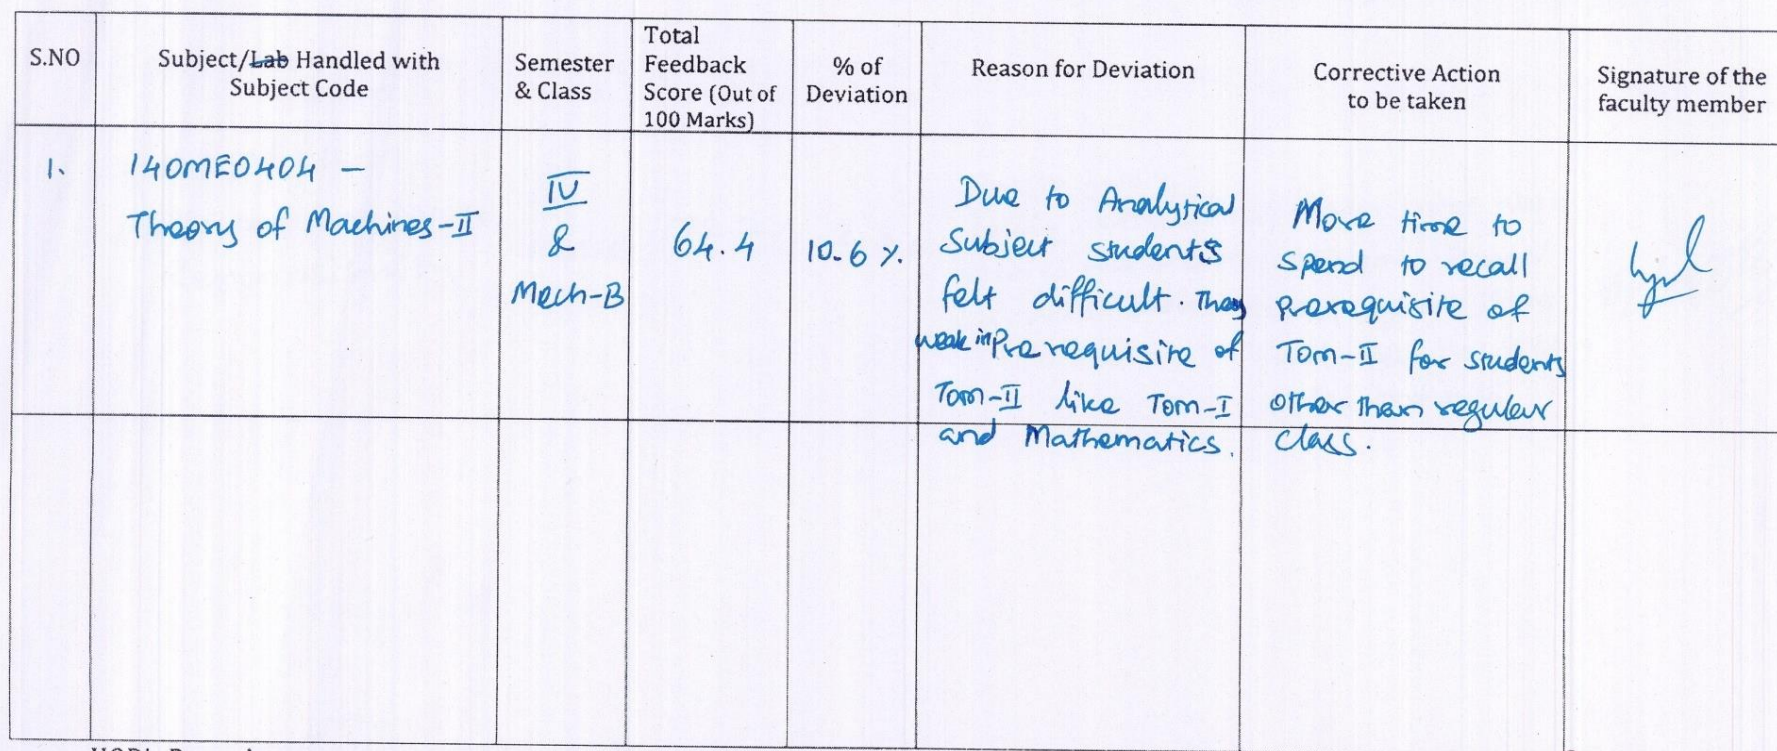 S.NO
Subject/Lab Handled with
Subject Code
Semester
& Class
Total
Feedback
Score (Out of
100 Marks)
% of
Deviation
Reason for Deviation
Corrective Action
to be taken
Signature of the
faculty member
1.
140ME0404 -
Theory of Machines-II
IV
&
Mech-B
64.4
10.6 %.
Due to Analytical
Subject students
felt difficult. They
weak in Prerequisite of
Tom-II like Tom-I
and Mathematics.
More time to
spend to recall
prerequisite of
Tom-II for students
other than regular
class.